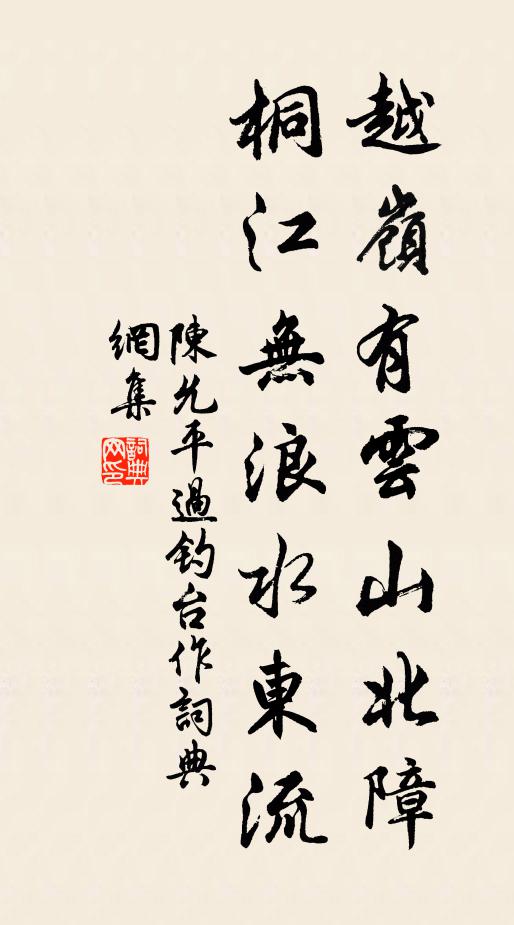 越嶺有雲山北障
桐江無浪水東流
陳允平過釣台作詞典
網集
詞典
网印